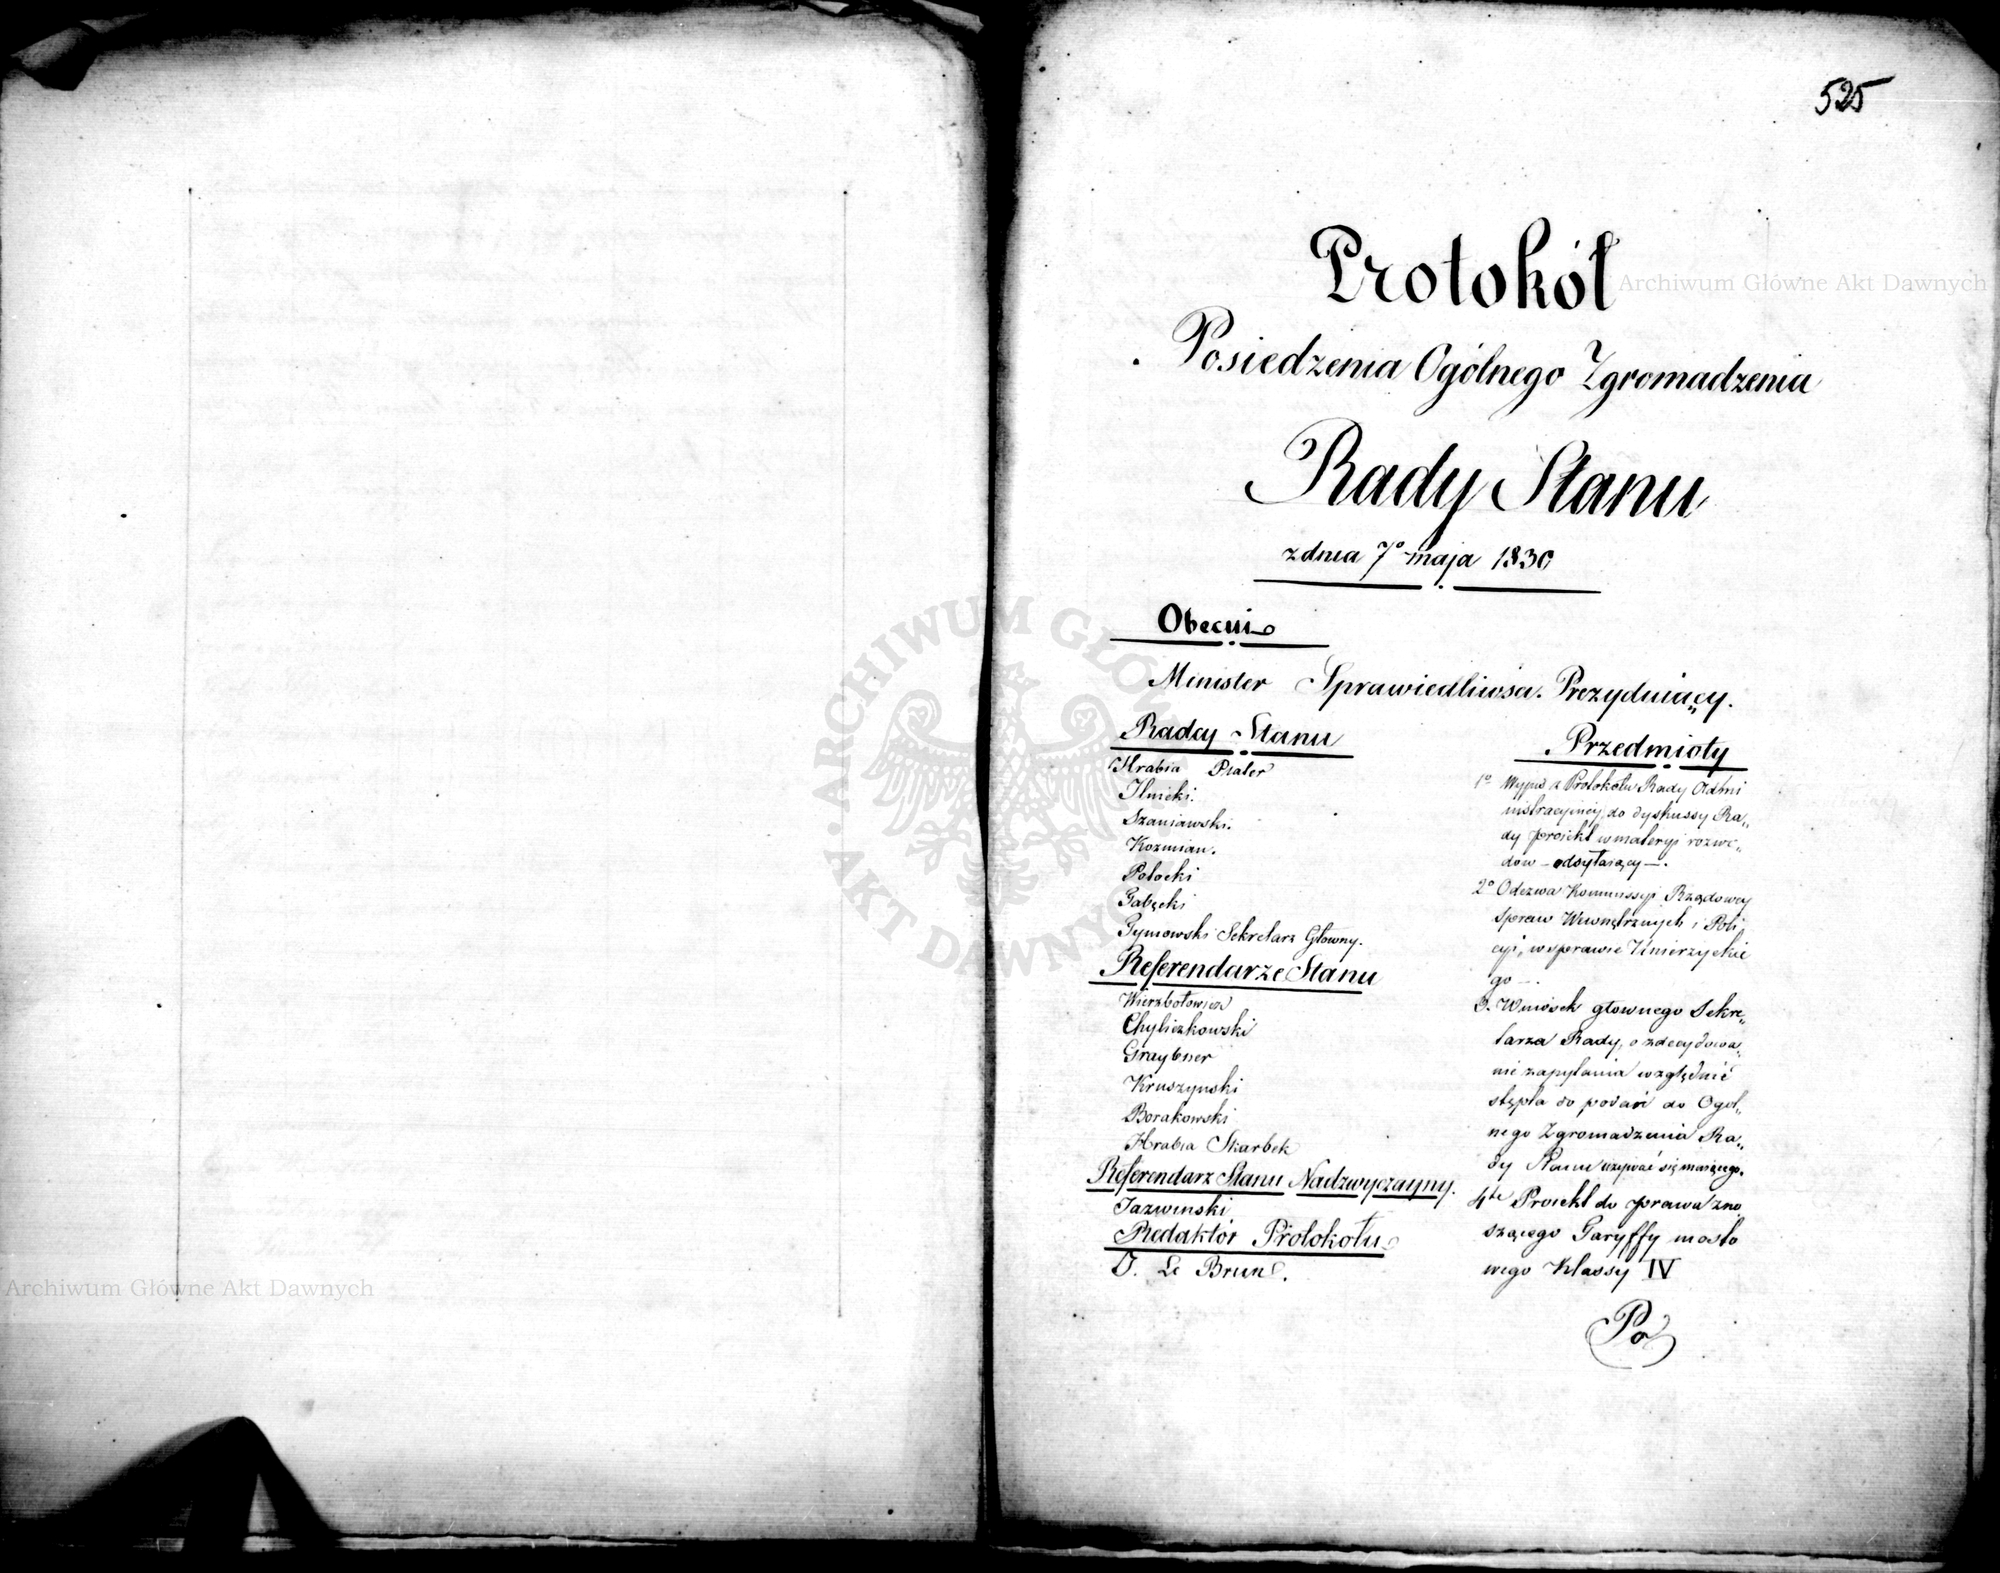 525
Protokół
Posiedzenia Ogólnego Zgromadzenia
Rady Stanu
z dnia 7º maja 1830
Obecni
Minister Sprawiedliwści. Prezyduiący.
Radcy Stanu
Hrabia Plater
Ilnicki.
Szaniawski.
Kozmian.
Potocki
Gałęcki
Tymowski Sekretarz Głowny.
Referendarze Stanu
Wierzbołowicz
Chyliczkowski
Graybner
Kruszynski
Borakowski
Hrabia Skarbek
Referendarz Stanu Nadzwyczayny.
Jazwinski
Redaktór Protokołu
J. Le Brun.
Przedmioty
1º Wypis z Protokołu Rady Admi
nistracyiney, do dyskussy Ra„
dy proiekt w materyi rozwo„
dów – odsyłaiący –.
2º Odezwa Kommissyi Rządowey
Spraw Wewnętrznych i Poli
cyi, w sprawie Zimierzyckie
go –.
3. Wniosek głownego Sekre„
tarza Rady, o zdecydowa„
nie zapytania względnie
stępla do podań do Ogól„
nego Zgromadzenia Ra„
dy Stanu używać się maiącego.
4te Proiekt do prawa zno
szącego Taryffy mosto
wego Klassy IV
Po
Archiwum Główne Akt Dawnych
Archiwum Główne Akt Dawnych
ARCHIWUM GŁÓWNE AKT DAWNYCH